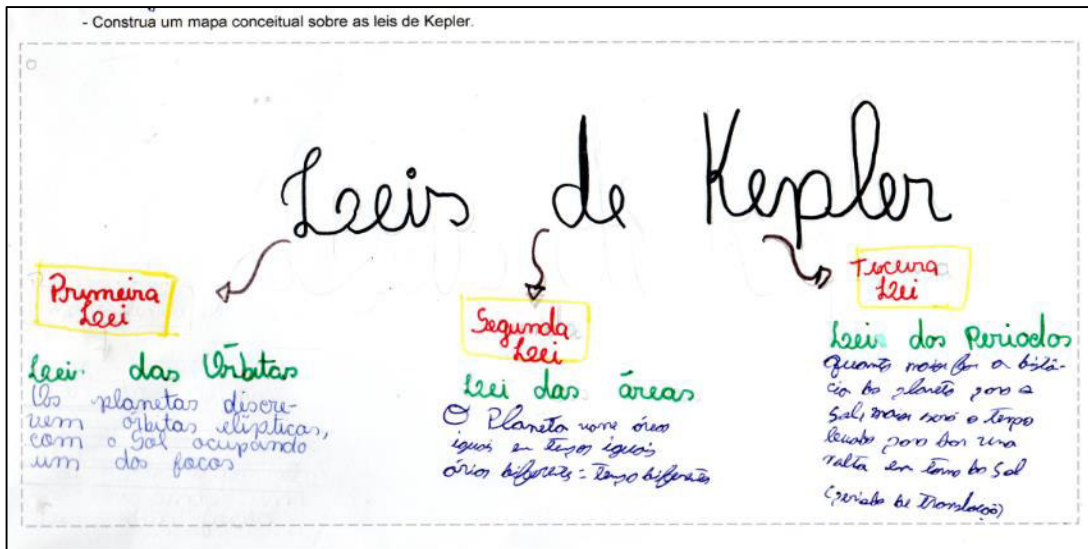 - Construa um mapa conceitual sobre as leis de Kepler.
Leis de Kepler
Primeira
Lei
Leis das Órbitas
Os planetas discre-
vem órbitas elípticas,
com o Sol ocupando
um dos focos
Segunda
Lei
Lei das áreas
O Planeta varre áreas
iguais em tempos iguais
áreas diferentes = tempo diferentes
Terceira
Lei
Leis dos Periodos
Quanto maior for a distân-
cia do planeta para o
Sol, maior será o tempo
levado para dar uma
volta em torno do Sol
(período de Translação)